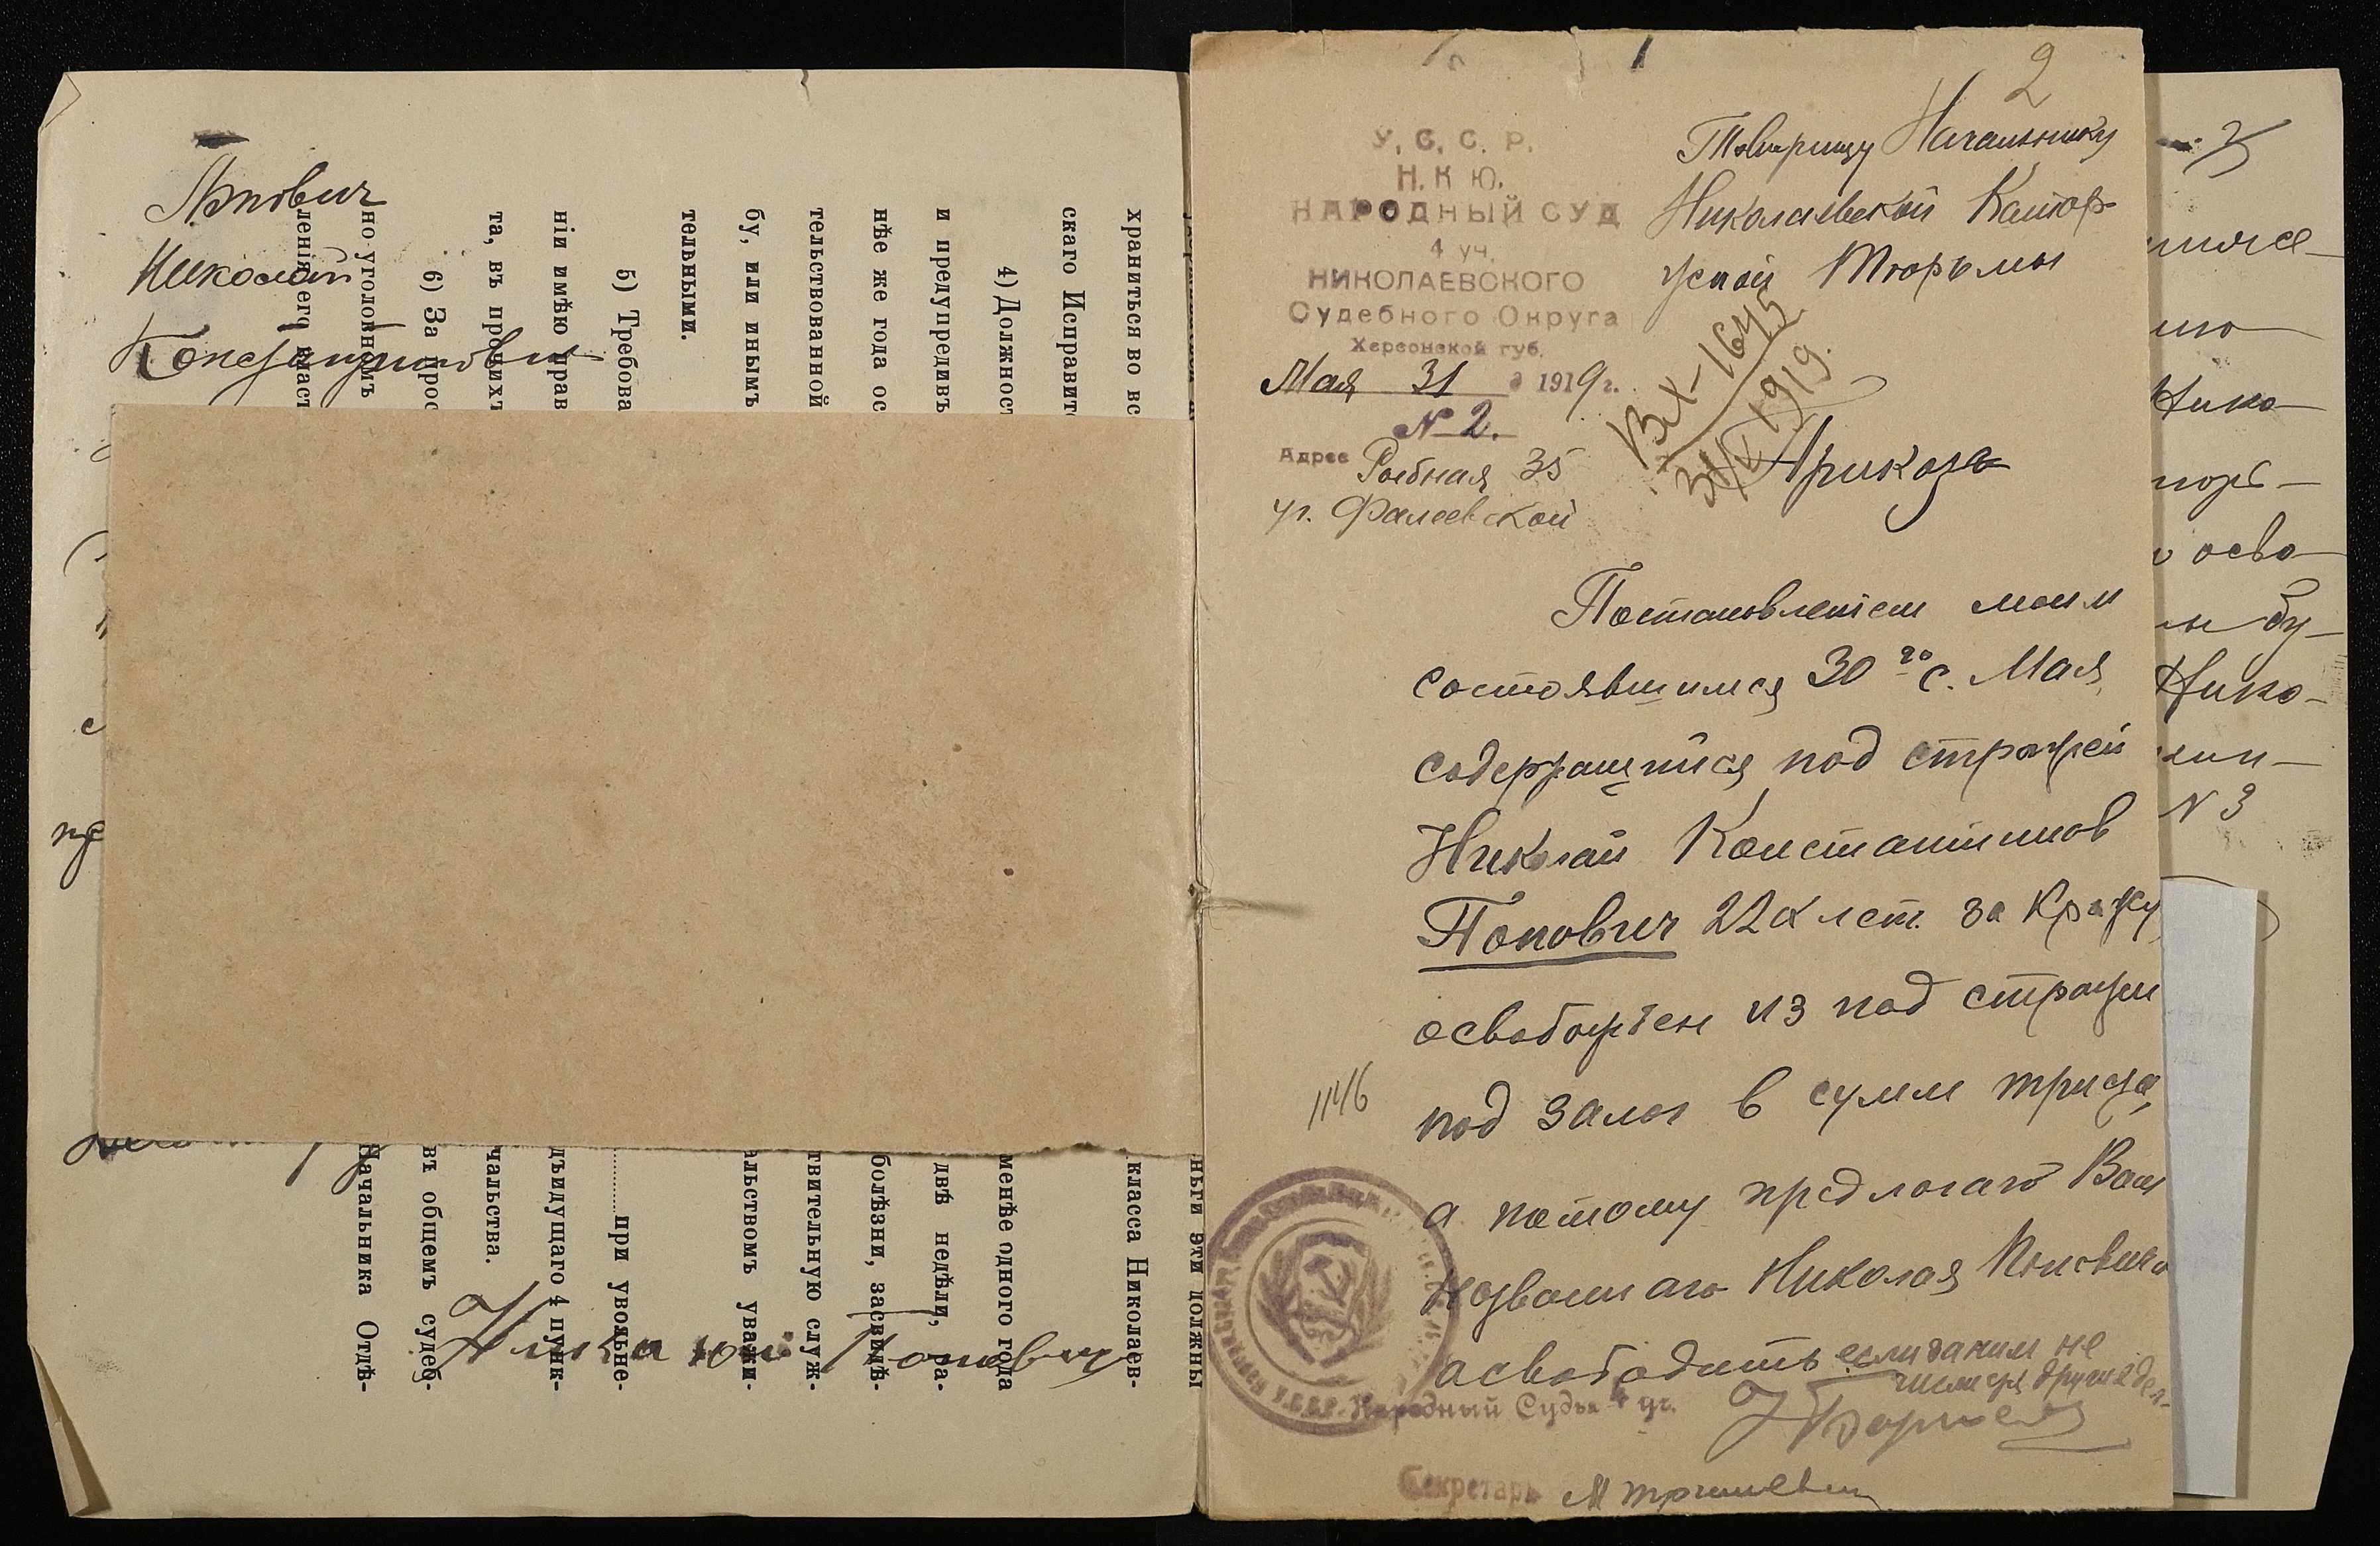 Попович
Николай
Константинови
храниться во вс
скаго Исправит
4) Должност
и предупредивъ
нѣе же года ос
тельствованной
бу, или инымъ
тельными.
5) Требова
ніи имѣю прав
та, въ прочихъ
6) За прос
но уголовномъ
ленія его част
ньги эти должны
класса Николаев-
менѣе одного года
двѣ недѣли, ра-
болѣзни, засвидѣ-
твительную служ-
альствомъ уважи-
при увольне-
дъидущаго 4 пунк-
чальства.
въ общемъ судеб-
Начальника Отдѣ-
Николай Попович
2
У. С. С. Р.
Н. К Ю.
НАРОДНЫЙ СУД
4 уч.
НИКОЛАЕВСКОГО
Судебного Округа
Херсонской губ.
Мая 31 1919 г.
№ 2.
Адрес Рыбная 35
уг. Фалеевской
Товарищу Начальнику
Николаевской Катор-
жной Тюрьмы
ВХ-1645
31/V 1919.
Приказ
Постановлением моим
состоявшимся 30го с. Мая
содержащийся под стражей
Николай Константинов
Попович 22х лет. за кражу
освобожден из под стражи
под залог в сумм
1146
а потому предлогаю Вам
названнаго Николая Поповича
освободить если за ним не
других дел
Народный Судья 4 уч.
Секретарь
3
Нико-
осво-
бу-
Нико-
N 3